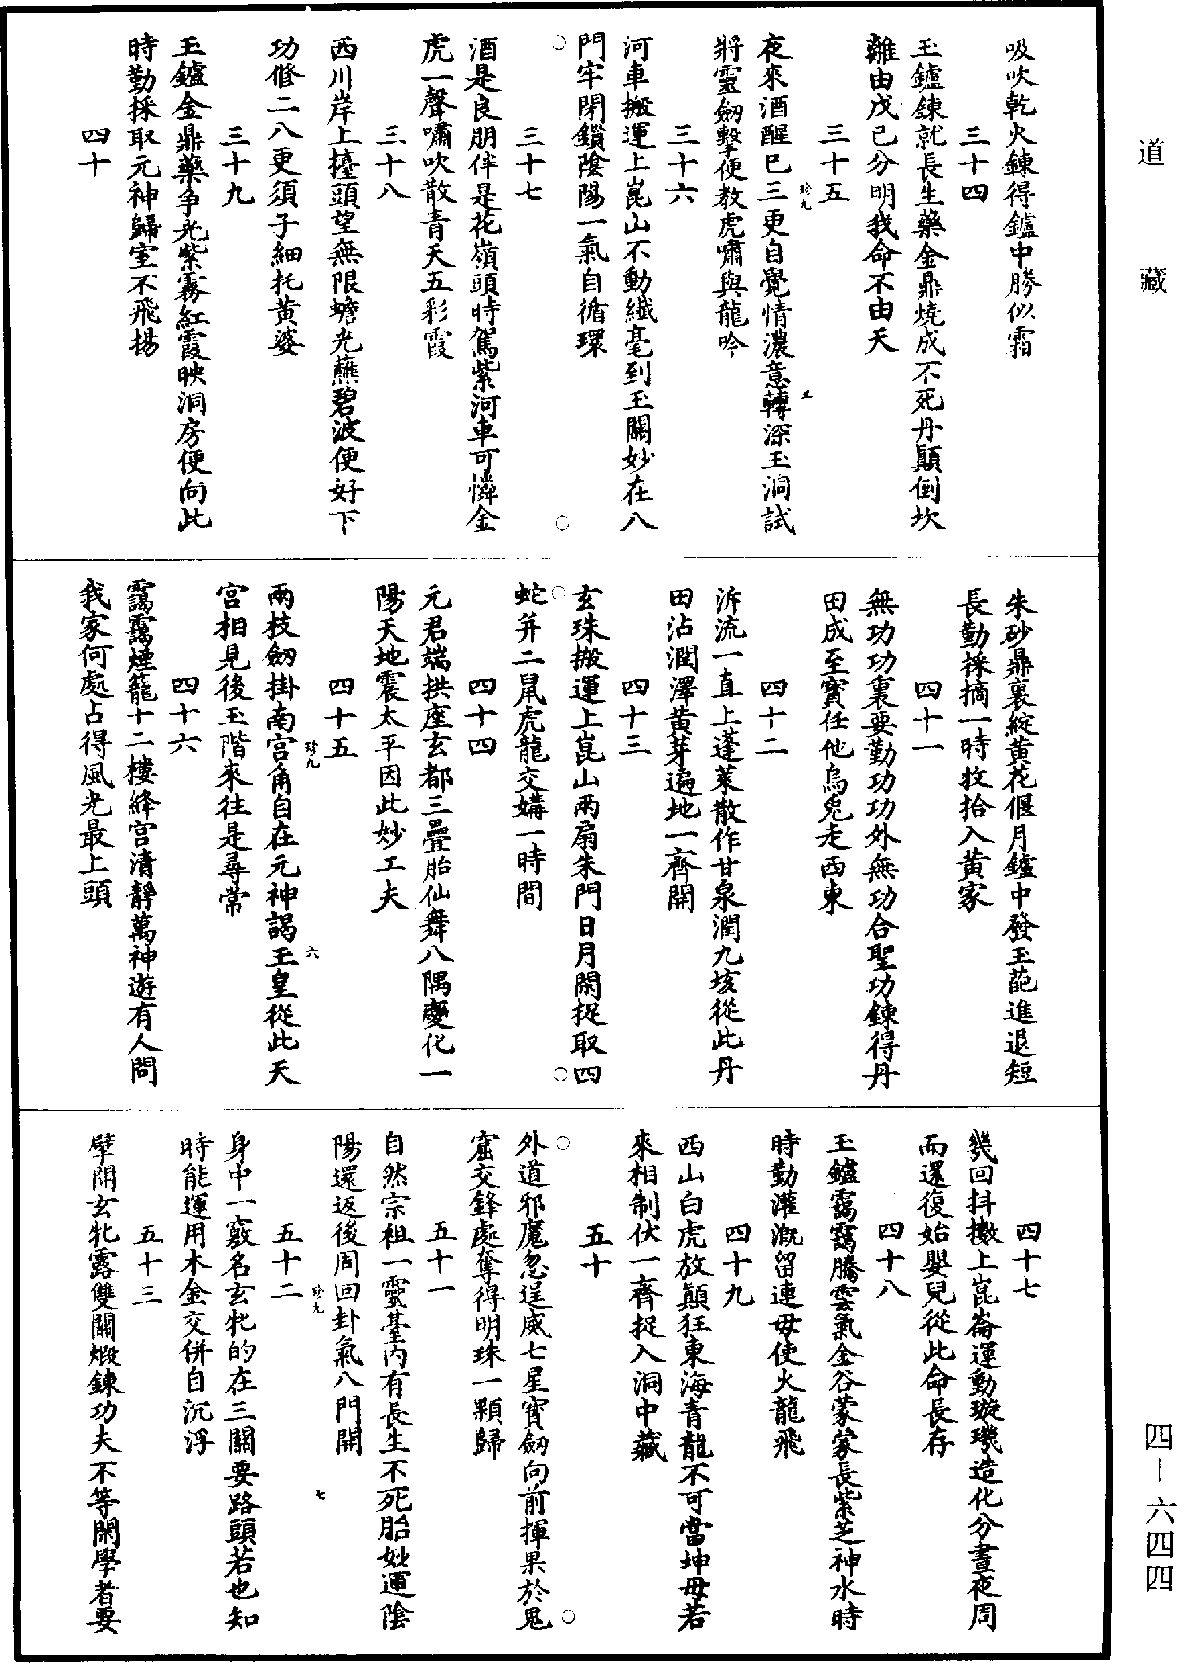 道藏
吸吹乾火鍊得鑪中勝似霜
三十四
玉鑪鍊就長生藥金鼎燒成不死丹顛倒坎
離由戊己分明我命不由天
三十五
夜來酒醒已三更自覺情濃意轉深玉洞試
將靈劒擊便教虎嘯與龍吟
三十六
河車搬運上崑山不動纖毫到玉關妙在八
門牢閉鎖陰陽一氣自循環
三十七
酒是良朋伴是花嶺頭時駕紫河車可憐金
虎一聲嘯吹散青天五彩霞
三十八
西川岸上擡頭望無限蟾光蘸碧波便好下
功修二八更須子細托黃婆
三十九
玉鑪金鼎藥爭光紫霧紅霞映洞房便向此
時勤採取元神歸室不飛揚
四十
朱砂鼎裏綻黃花偃月鑪中發玉葩進退短
長勤採摘一時收拾入黃家
四十一
無功功裏要勤功功外無功合聖功鍊得丹
田成至寶任他烏兔走西東
四十二
泝流一直上蓬萊散作甘泉潤九垓從此丹
田沾潤澤黃芽遍地一齊開
四十三
玄珠搬運上崑山兩扇朱門日月閑捉取四
蛇并二鼠虎龍交媾一時間
四十四
元君端拱座玄都三疊胎仙舞八隅變化一
陽天地震太平因此妙工夫
四十五
兩枝劒掛南宮角自在元神謁玉皇從此天
宮相見後玉階來往是尋常
四十六
靄靄煙籠十二樓絳宮清靜萬神遊有人問
我家何處占得風光最上頭
四十七
幾回抖擻上崑崙運動璇璣造化分晝夜周
而還復始嬰兒從此命長存
四十八
玉鑪靄靄騰雲氣金谷蒙蒙長紫芝神水時
時勤灌溉留連母使火龍飛
四十九
西山白虎放顛狂東海青龍不可當坤母若
來相制伏一齊捉入洞中藏
五十
外道邪魔忽逞威七星寶劒向前揮果於鬼
窟交鋒處奪得明珠一顆歸
五十一
自然宗祖一靈臺內有長生不死胎妙運陰
陽還返後周回卦氣八門開
五十二
身中一竅名玄牝的在三關要路頭若也知
時能運用木金交併自沉浮
五十三
擘開玄牝露雙關煅鍊功夫不等閑學者要
四—六四四